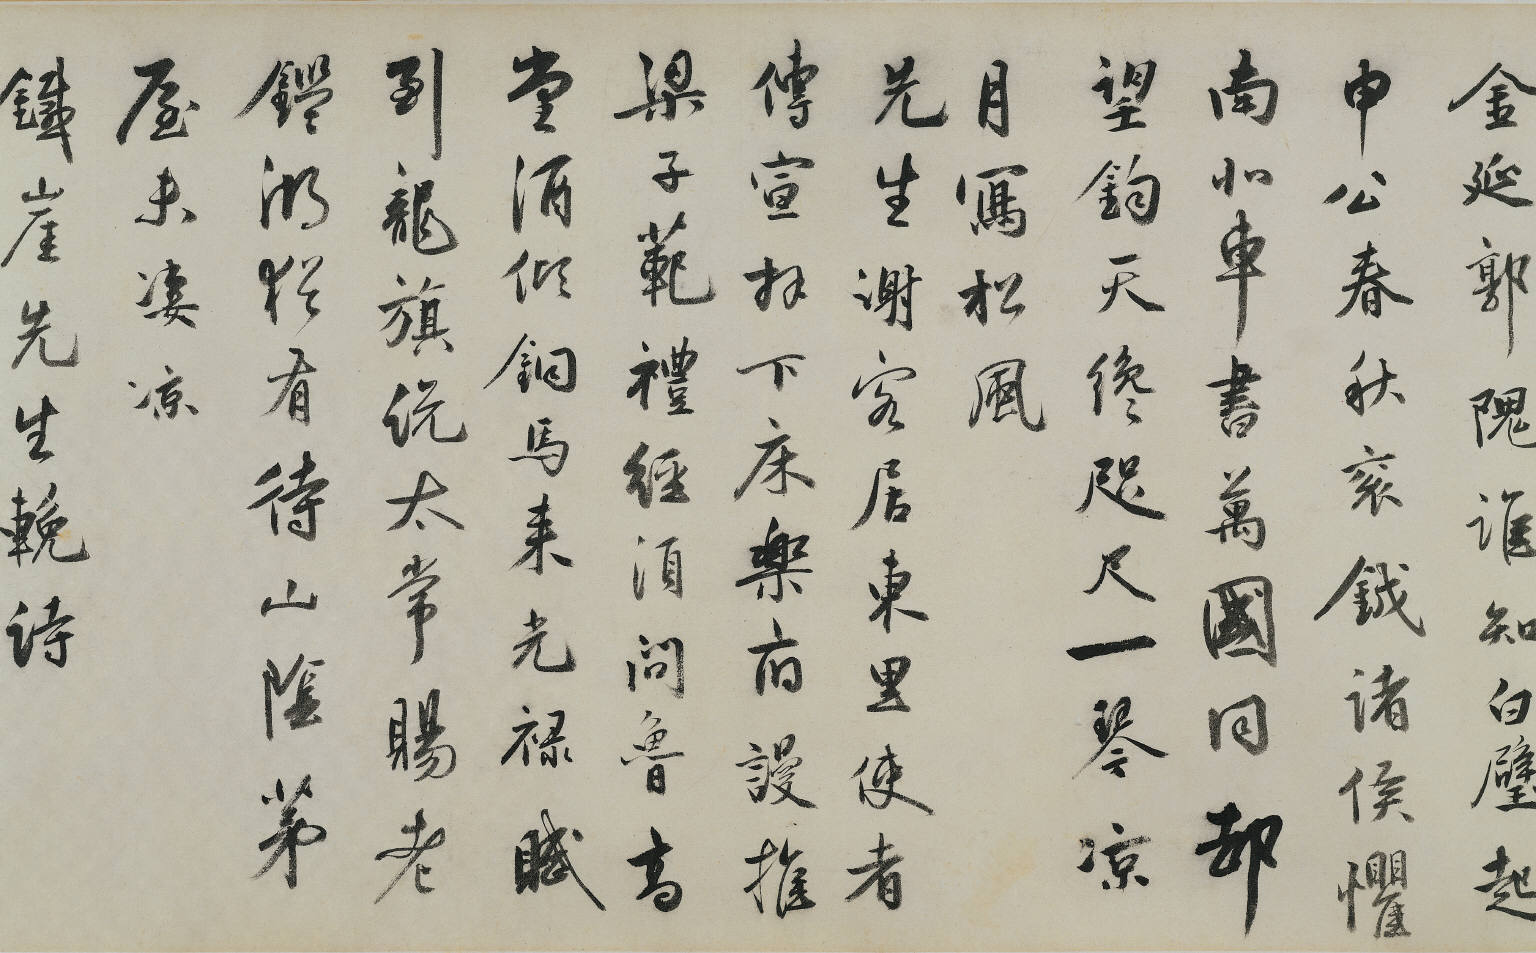 金延郭隗誰知白璧起
申公春秋袞鉞諸侯懼
南北車書萬國同郤
望鈞天纔咫尺一琴凉
月寫松風
先生謝客居東里使者
傳宣拜下床樂府謾推
梁子範禮經須問魯高
堂酒傾銅馬來光禄賦
到龍旗説太常賜老
鑑湖猶有待山陰茅
屋未凄凉
鐵崖先生輓詩